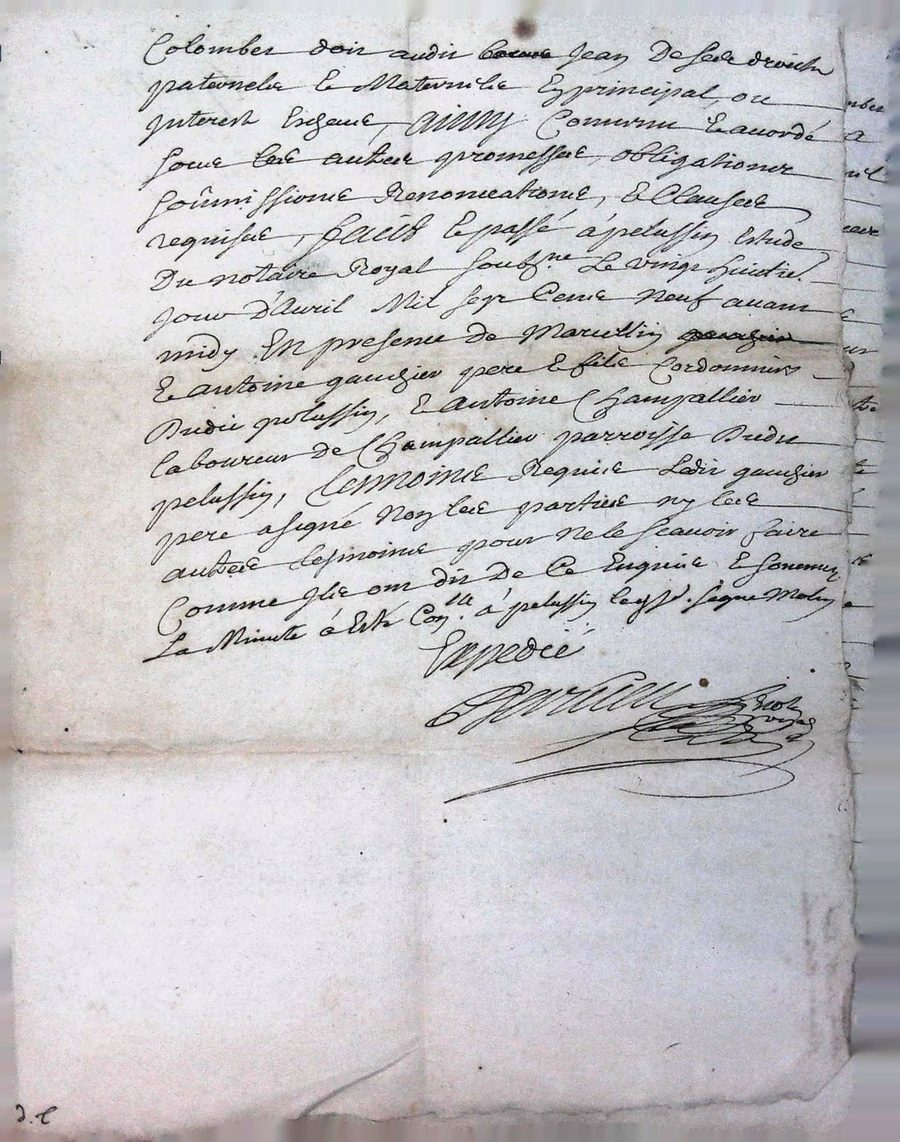 Colombes doit audit Jean De ses droicts
paternels Et Maternels En principal, ou
Interest Escheus, ainsy Convenu Et accordé
soubs les autres promesses, obligations
soûmissions Renonciations, Et Clauses
requises, faict Et passé à pelussin Estude
Du notaire Royal soubs.né Le vingt huictie.
jour D'Avril Mil sept Cens neuf avant
midy. En presence de Marcellin
Et antoine gaucher pere Et fils Cordonniers
Dudit pelussin, Et antoine Champallier
laboureur de Champallier parroisse Dudit
pelussin, tesmoins Requis Ledit gaucher
pere a signé Non les parties ny les
autres tesmoins pour ne le scavoir faire
Comme Ils ont dit De Ce Enquis Et sommez
La Minute à Esté Con.lée à pelussin Signé
Expedié
d. C